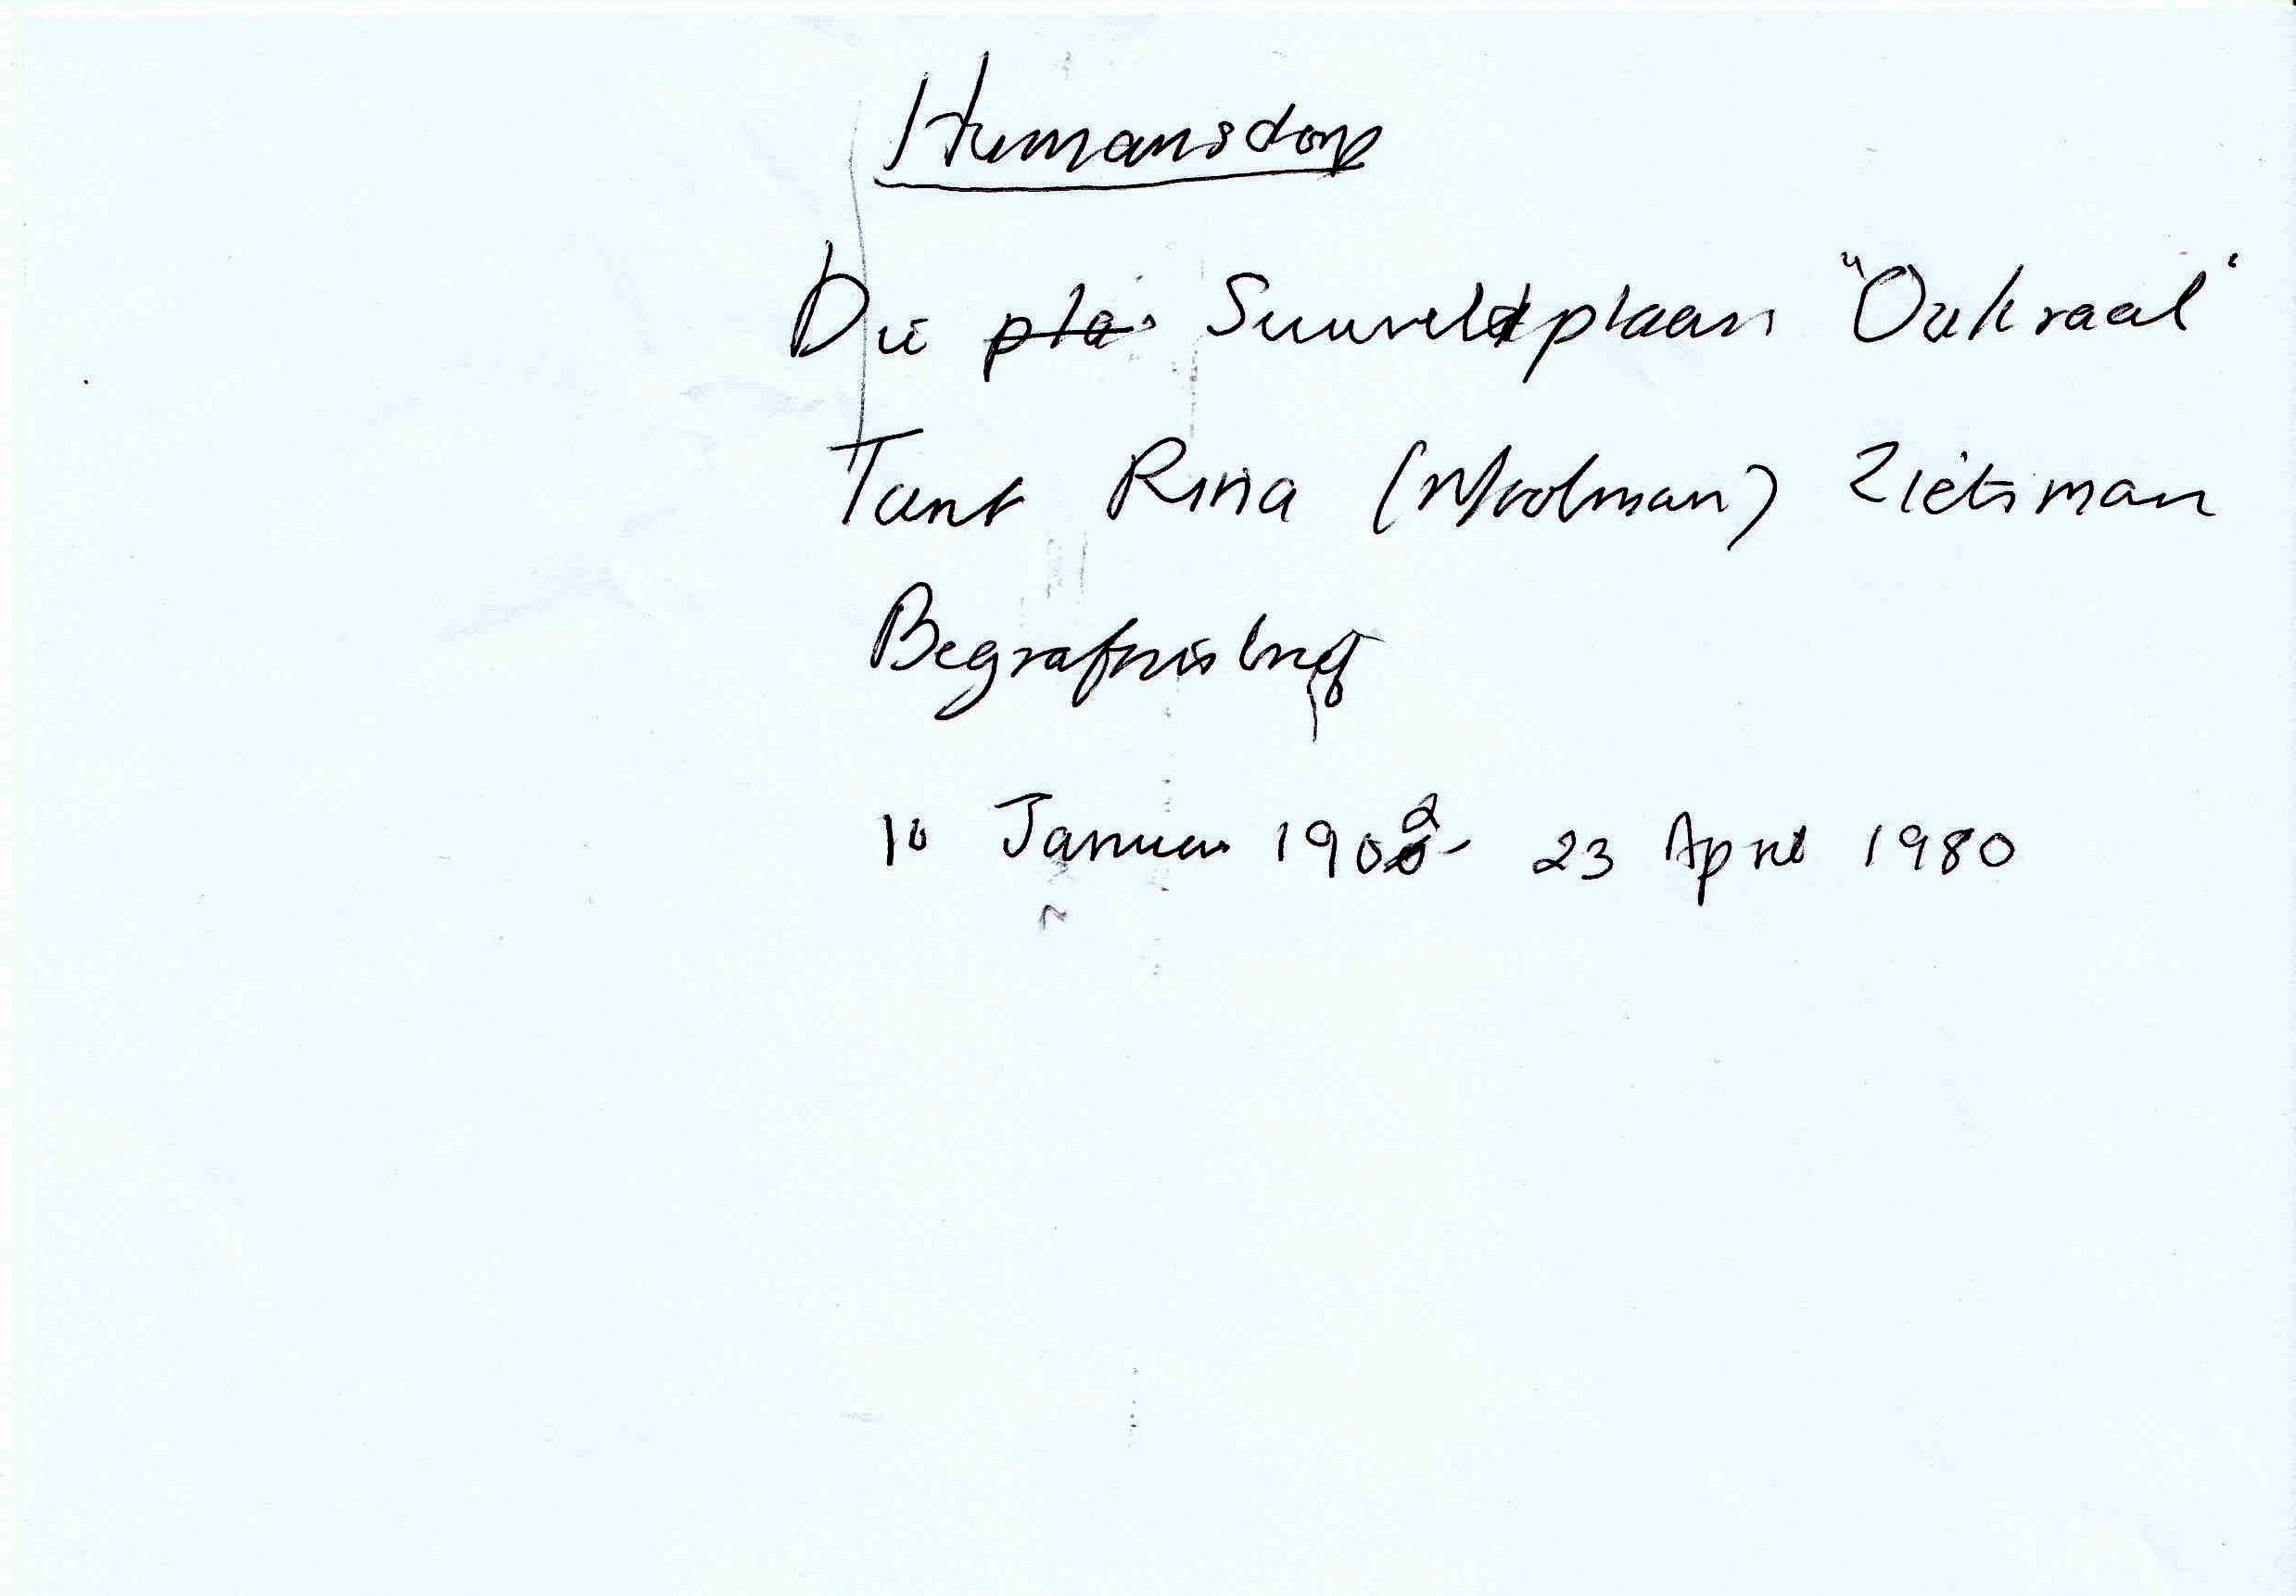 Humansdorp
Die plas Suurveldplaas "Oukraal"
Tant Rina (Moolman) Zietsman
Begrafnisbrief
10 Januar 1902 - 23 April 1980